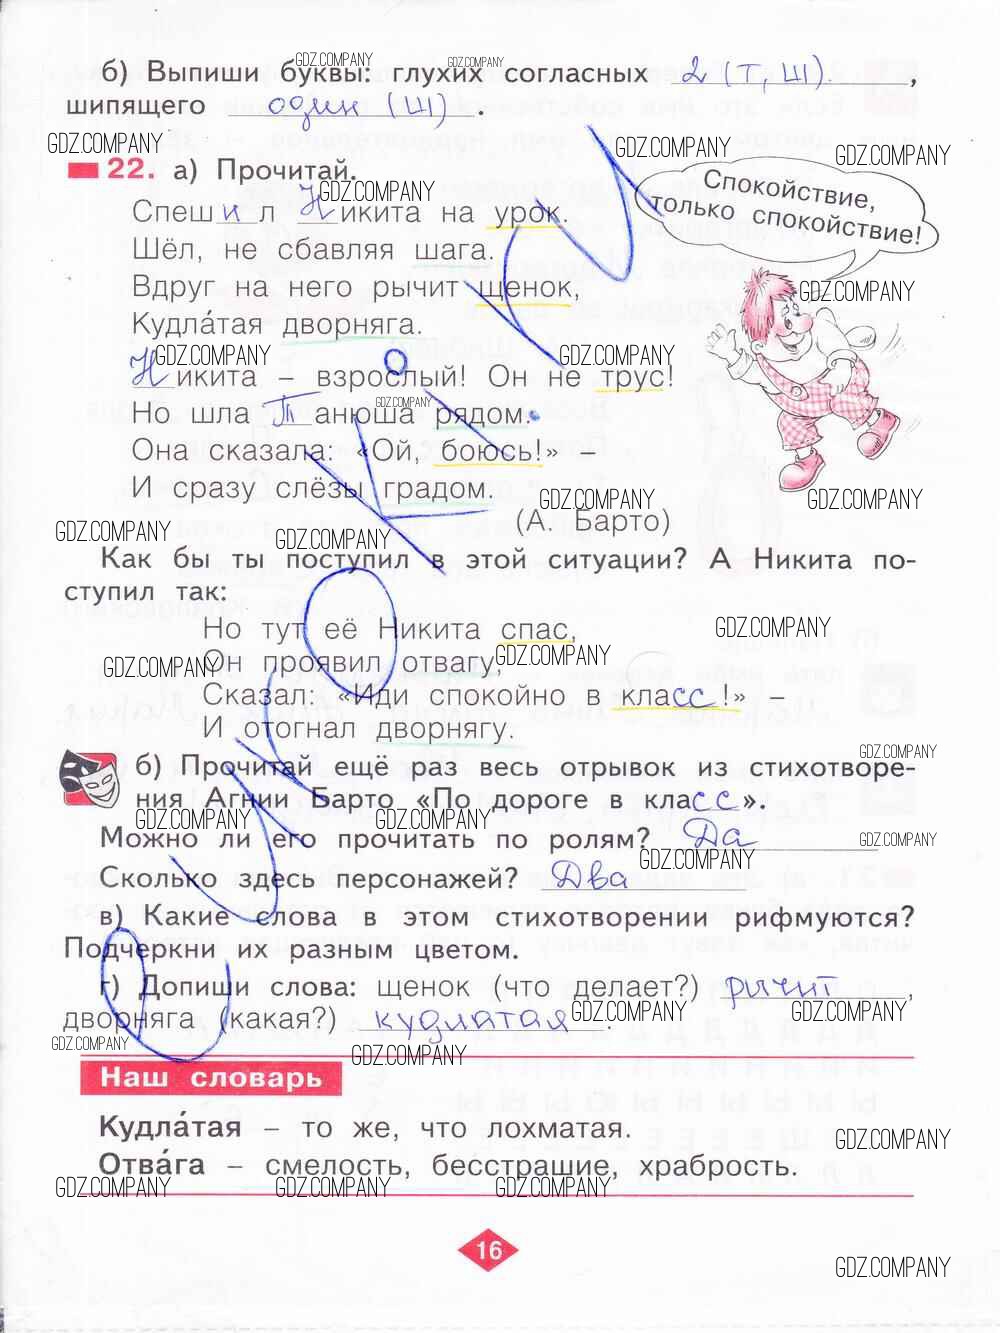 б) Выпиши буквы: глухих согласных 2 (т, ш).,
шипящего один (ш).
22. а) Прочитай.
Спокойствие,
только спокойствие!
Спеши л Никита на урок.
Шёл, не сбавляя шага.
Вдруг на него рычит щенок,
Кудла́тая дворняга.
Никита – взрослый! Он не трус!
Но шла Танюша рядом.
Она сказала: «Ой, боюсь!» –
И сразу слёзы градом.
(А. Барто)
Как бы ты поступил в этой ситуации? А Никита по-
ступил так:
Но тут её Никита спас,
Он проявил отвагу,
Сказал: «Иди спокойно в класс!» –
И отогнал дворнягу.
б) Прочитай ещё раз весь отрывок из стихотворе-
ния Агнии Барто «По дороге в класс».
Можно ли его прочитать по ролям? Да
Сколько здесь персонажей? Два
в) Какие слова в этом стихотворении рифмуются?
Подчеркни их разным цветом.
г) Допиши слова: щенок (что делает?) рычит,
дворняга (какая?) кудлатая.
Наш словарь
Кудла́тая – то же, что лохматая.
Отва́га – смелость, бесстрашие, храбрость.
16
GDZ.COMPANY